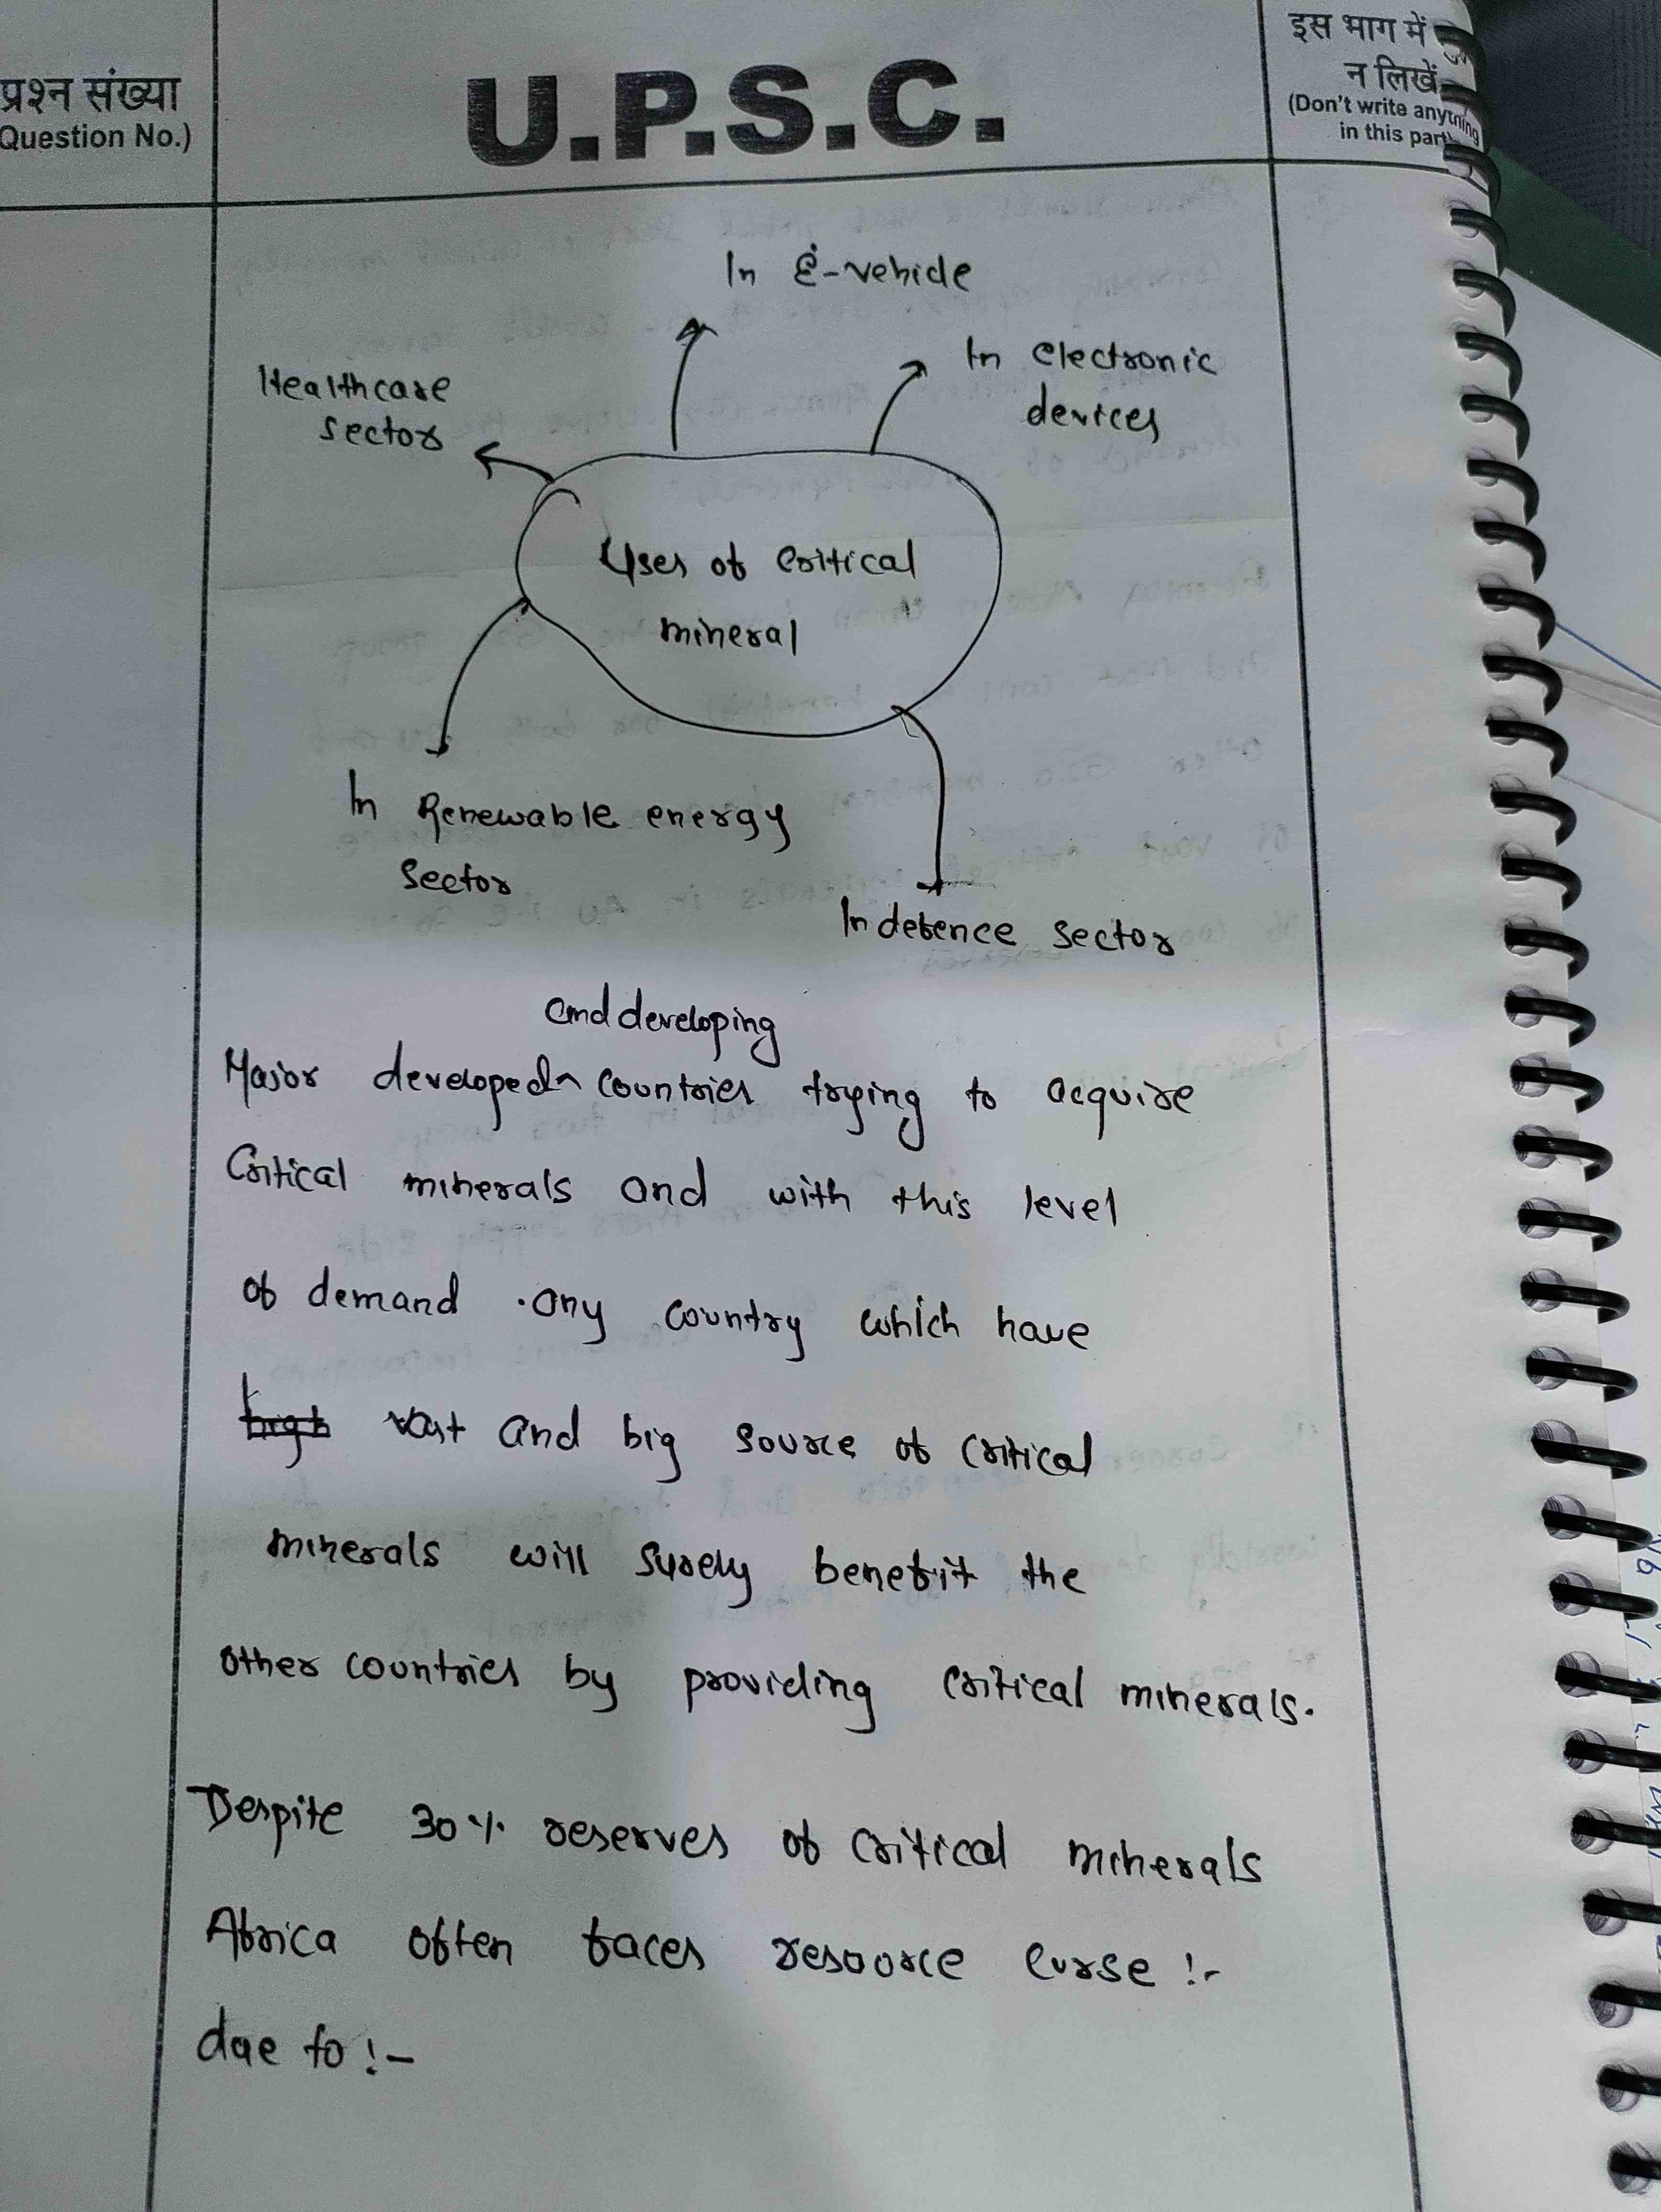 प्रश्न संख्या
(Question No.)
U.P.S.C.
इस भाग में
न लिखें
(Don't write anything
in this part)
In E-vehicle
In electronic
devices
Healthcare
sector
Uses of critical
mineral
In Renewable energy
sector
In defence sector
and developing
Major developed countries trying to acquire
Critical minerals and with this level
of demand any country which have
high vast and big source of critical
minerals will surely benefit the
other countries by providing critical minerals.
Despite 30% reserves of critical minerals
Africa often faces resource curse :-
due to :-